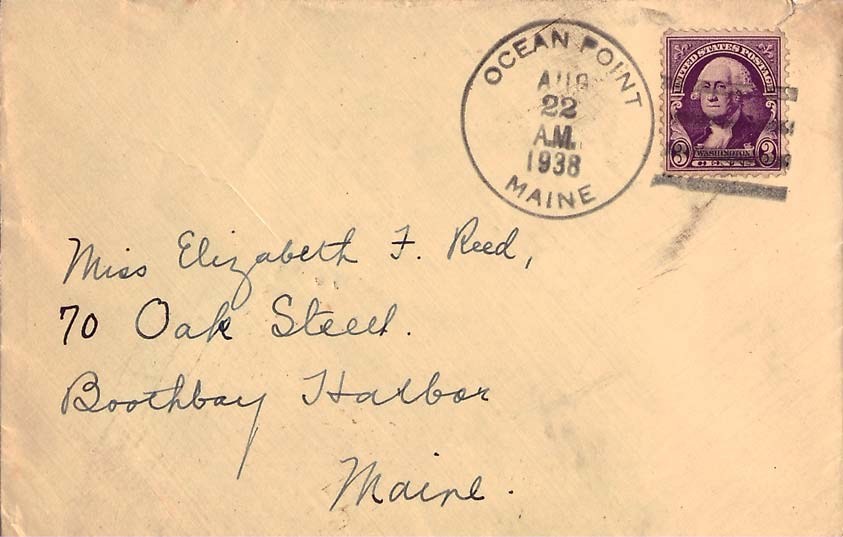 OCEAN POINT
AUG
22
A.M.
1938
MAINE
UNITED STATES POSTAGE
3 WASHINGTON 3
CENTS
Miss Elizabeth F. Reed,
70 Oak Street.
Boothbay Harbor
Maine.